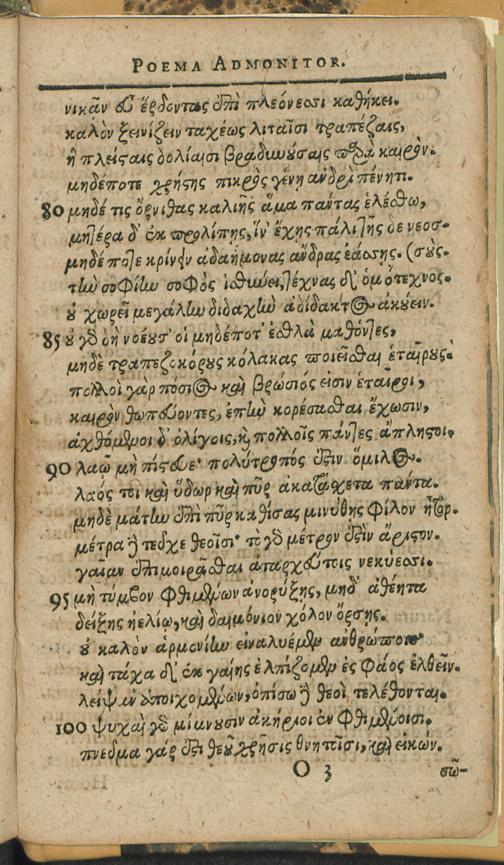 POEMA ADMONITOR.
νικᾶν εὖ ἕρδοντας ἐπὶ πλεόνεσσι καθήκει.
καλὸν ξεινίζειν ταχέως λιταῖσι τραπέζαις,
ἢ πλείσαις δολίαισι βραδυνούσαις παρὰ καιρόν.
μηδέποτε χρήσης πικρὸς γένη ἀνδρὶ πένητι.
80 μηδέ τις ὄρνιθας καλιῆς ἅμα πάντας ἑλέσθω,
μητέρα δ' ἐκ προλίπης, ἵν' ἔχης πάλι τῆς δε νεοσ-
μηδέ ποτε κρίνην ἀδαήμονας ἄνδρας ἐάσης. (σούς.
τὴν σοφίην σοφὸς ἰθύνει, τέχνας δ' ὁμότεχνος.
οὐ χωρεῖ μεγάλην διδαχὴν ἀδίδακτος ἀκούειν.
85 οὐ γὰρ δὴ νοέουσ' οἱ μηδέποτ' ἐσθλὰ μαθόντες,
μηδὲ τραπεζοκόρους κόλακας ποιεῖσθαι ἑταίρους.
πολλοὶ γὰρ πόσιος καὶ βρώσιός εἰσιν ἑταῖροι,
καιρὸν θωπεύοντες, ἐπὴν κορέσασθαι ἔχωσιν,
ἀχθόμενοι δ' ὀλίγοις, καὶ πολλοῖς πάντες ἄπληστοι.
90 λαῷ μὴ πίστευε· πολύτροπός ἐστιν ὅμιλος.
λαός τοι καὶ ὕδωρ καὶ πῦρ ἀκατάσχετα πάντα.
μηδὲ μάτην ἐπὶ πῦρ καθίσας μινύθης φίλον ἦτορ.
μέτρα δὲ τεῦχε θεοῖσι· τὸ γὰρ μέτρον ἐστὶν ἄριστον.
γαῖαν ἐπιμοιρᾶσθαι ἀταρχύτοις νεκύεσσι.
95 μὴ τύμβον φθιμένων ἀνορύξης, μηδ' ἀθέητα
δείξης ἠελίῳ, καὶ δαιμόνιον χόλον ὄρσης.
οὐ καλὸν ἁρμονίην ἀναλυέμεν ἀνθρώποιο·
καὶ τάχα δ' ἐκ γαίης ἐλπίζομεν ἐς φάος ἐλθεῖν.
λείψαν' ἀποιχομένων, ὀπίσω δὲ θεοὶ τελέθονται.
100 ψυχαὶ γὰρ μίμνουσιν ἀκήριοι ἐν φθιμένοισι.
πνεῦμα γάρ ἐστι θεοῦ χρῆσις θνητοῖσι, καὶ εἰκών.
O 3 σῶ-